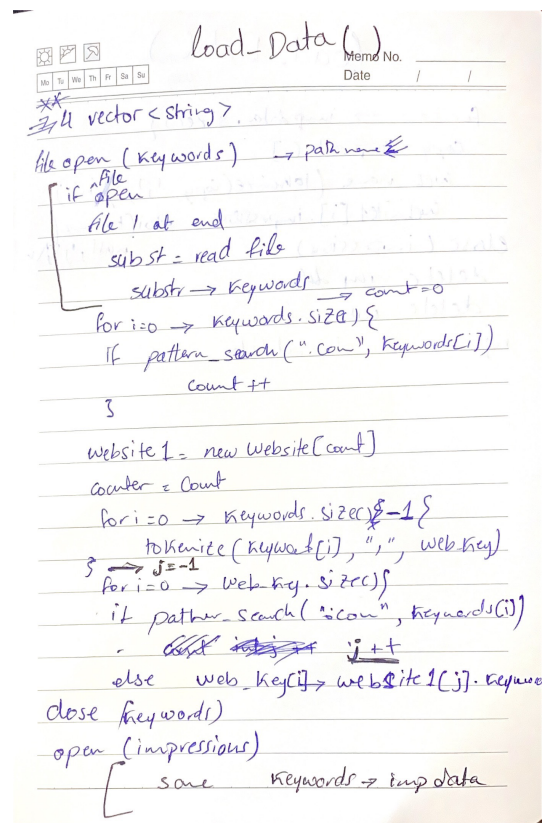 load_Data()
Memo No.
Mo Tu We Th Fr Sa Su
Date / /
**
4 vector<string>
file open (Keywords) → path name
if file open
file ! at end
subst = read file
substr → Keywords → count=0
for i=0 → Keywords.size) {
if pattern_search(".com", Keywords[i])
count ++
}
website 1 = new Website[count]
counter = Count
for i=0 → Keywords.size()-1 {
tokenize (Keywod[i], ",", web_key)
} → j=-1
for i=0 → Web_key.size() {
if pather_search(".com", Keywords[i])
j++
else web_Key[i] → website1[j].Keywo
close (keywords)
open (impressions)
same Keywords → imp data